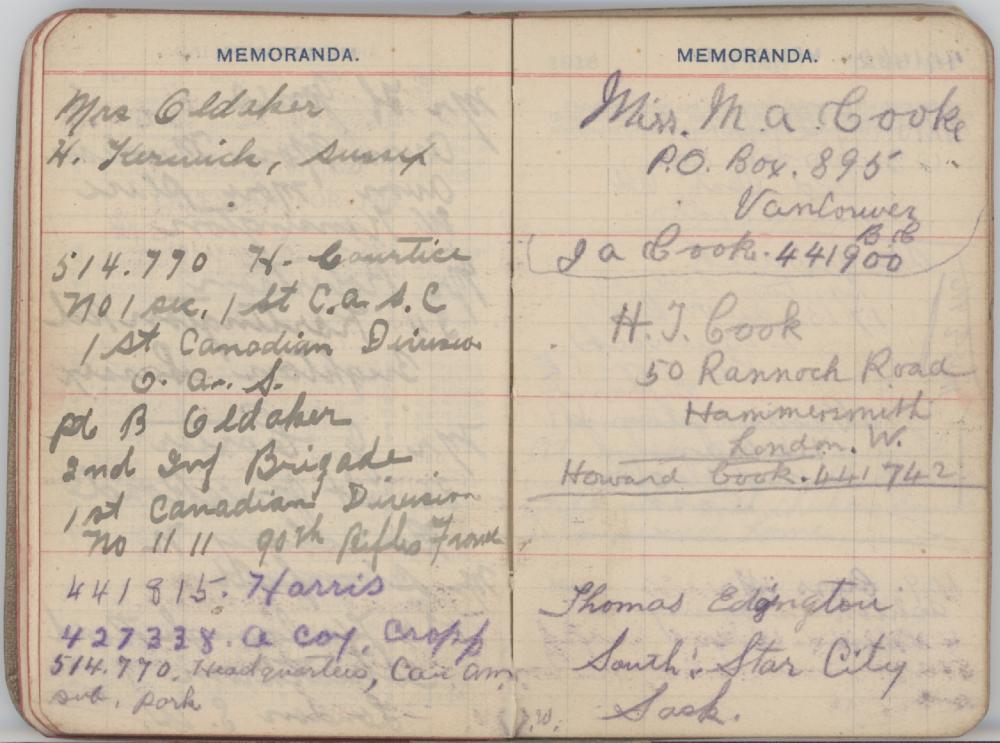 MEMORANDA.
Mrs Oldaker
H. Keswick, Sussex
514.770 H. Courtice
No 1 sec, 1st C.A.S.C
1st Canadian Division
O.A.S.
pte B Oldaker
2nd Inf Brigade
1st Canadian Division
No 1111 90th Rifles France
441815. Harris
427338. A Coy. Cropp
514.770. Headquarters, Can Am
sub. park
MEMORANDA.
Miss. M. A. Cooke
P.O. Box. 895
Vancouver
B.C
J A Cook. 441900
H. J. Cook
50 Rannoch Road
Hammersmith
London. W.
Howard Cook. 441742
Thomas Edgington
South Star City
Sask.